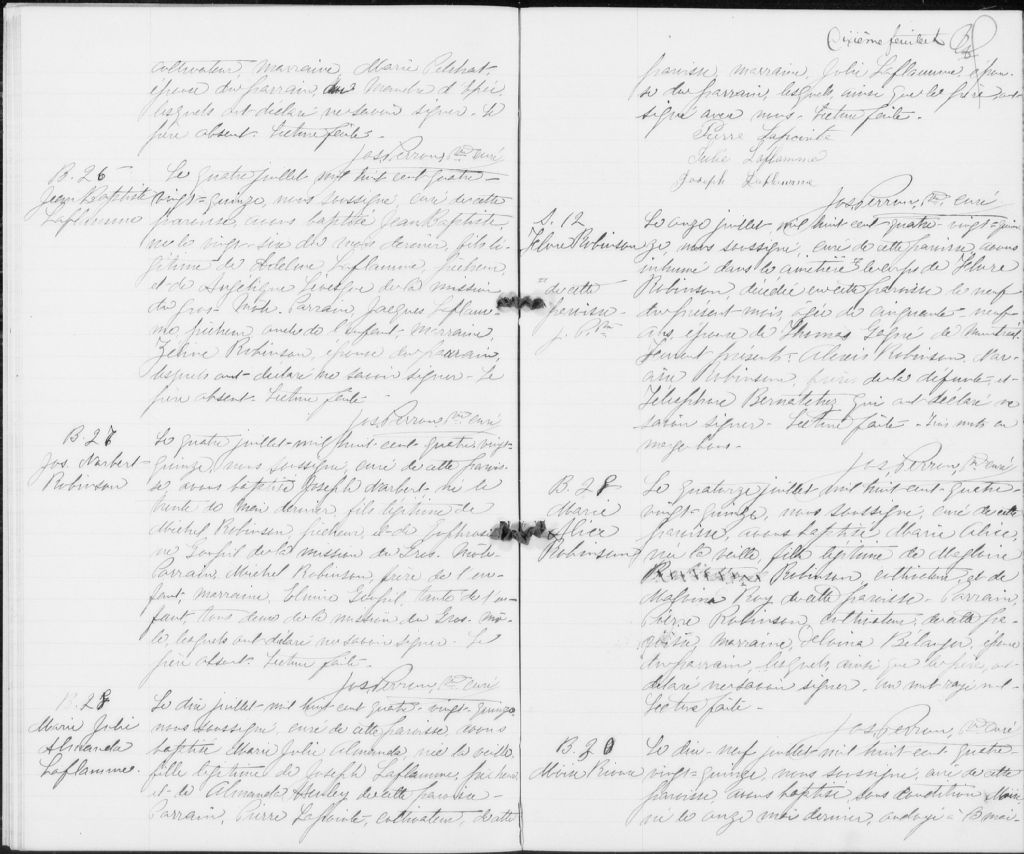 cultivateur, marraine, Marie Pelchat,
épouse du parrain,
lesquels ont déclaré ne savoir signer. Le
père absent. Lecture faite.
Jos. Perron, Ptre curé
B. 26
Jean Baptiste
Laflamme
Le quatre juillet mil huit cent quatre-
vingt-quinze, nous soussigné, curé de cette
paroisse, avons baptisé Jean Baptiste,
né le vingt-six du mois dernier, fils lé-
gitime de Laflamme, pêcheur,
et de Angélique Levesque de la mission
du Gros-Mole. Parrain, Jacques Laflam-
me, pêcheur, oncle de l'enfant, marraine,
Zéline Robinson, épouse du parrain,
lesquels ont déclaré ne savoir signer. Le
père absent. Lecture faite.
Jos. Perron, Ptre curé
B. 27
Jos. Norbert
Robinson
Le quatre juillet mil huit cent quatre-vingt-
quinze, nous soussigné, curé de cette parois-
se avons baptisé Joseph Norbert, né le
trente de mai dernier, fils légitime de
Michel Robinson, pêcheur, et de
de la mission du Gros-Mole.
Parrain, Michel Robinson, frère de l'en-
fant, marraine, tante de l'en-
fant, tous deux de la mission du Gros-Mo-
le, lesquels ont déclaré ne savoir signer. Le
père absent. Lecture faite.
Jos. Perron, Ptre curé
B. 28
Marie Julie
Almanda
Laflamme.
Le dix juillet mil huit cent quatre-vingt-quinze,
nous soussigné, curé de cette paroisse avons
baptisé Marie Julie Almanda née la veille
fille légitime de Joseph Laflamme, pêcheur
et de Almanda de cette paroisse.
Parrain, Pierre Lapointe, cultivateur, de cette
Dixième feuillet
paroisse, marraine, Julie Laflamme, épou-
se du parrain, lesquels ainsi que le père ont
signé avec nous. Lecture faite.
Pierre Lapointe
Julie Laflamme
Joseph Laflamme
Jos. Perron, Ptre curé
S. 12
Robinson
de cette
paroisse.
J. P. Ptre
Le onze juillet, mil huit cent quatre-vingt-quin-
ze, nous soussigné, curé de cette paroisse, avons
inhumé dans le cimetière le corps de
Robinson, décédée en cette paroisse le neuf
du présent mois, âgée de cinquante-neuf
ans, épouse de Thomas Gagné de
Furent présents Alexis Robinson,
Robinson, frères de la défunte, et
Télesphore Bernatchez qui ont déclaré ne
savoir signer. Lecture faite. Trois mots en
marge bons.
Jos. Perron, Ptre curé
B. 29
Marie
Alice
Robinson
Le quatorze juillet mil huit cent quatre-
vingt-quinze, nous soussigné, curé de cette
paroisse, avons baptisé Marie Alice,
née la veille, fille légitime de Magloire
Robinson, cultivateur, et de
Malvina Roy de cette paroisse. Parrain,
Pierre Robinson, cultivateur, de cette pa-
roisse, marraine, Bélanger, épouse
du parrain, lesquels, ainsi que le père, ont
déclaré ne savoir signer. Un mot rayé nul.
Lecture faite.
Jos. Perron, Ptre curé
B. 30
Le dix-neuf juillet mil huit cent quatre-
vingt-quinze, nous soussigné, curé de cette
paroisse, avons baptisé sous condition
né le onze mai dernier, ondoyé à la mai-